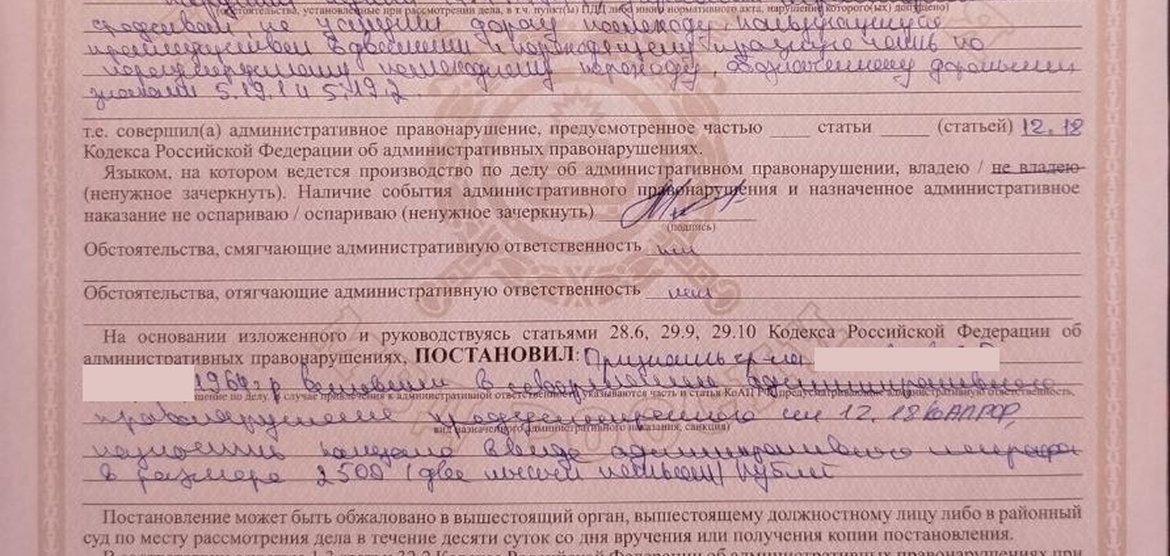 (обстоятельства, установленные при рассмотрении дела, в т.ч. пункт(ы) ПДД либо иного нормативного акта, нарушение которого(ых) допущено)
не уступил дорогу пешеходу, пользующемуся
преимуществом в движении и переходящему проезжую часть по
нерегулируемому пешеходному переходу, обозначенному дорожными
знаками 5.19.1 и 5.19.2.
т.е. совершил(а) административное правонарушение, предусмотренное частью ____ статьи _____ (статьей) 12.18
Кодекса Российской Федерации об административных правонарушениях.
Языком, на котором ведется производство по делу об административном правонарушении, владею / не владею
(ненужное зачеркнуть). Наличие события административного правонарушения и назначенное административное
наказание не оспариваю / оспариваю (ненужное зачеркнуть)
(подпись)
Обстоятельства, смягчающие административную ответственность нет
Обстоятельства, отягчающие административную ответственность нет
На основании изложенного и руководствуясь статьями 28.6, 29.9, 29.10 Кодекса Российской Федерации об
административных правонарушениях, ПОСТАНОВИЛ: Признать гр-на
1960 г.р виновным в совершении административного
шение по делу, в случае привлечения к административной ответственности указываются часть и статья КоАП РФ, предусматривающие административную ответственность,
правонарушения предусмотренного ст 12.18 КоАП РФ,
вид назначенного административного наказания, санкция)
назначить наказание в виде административного штрафа
в размере 2500 (две тысячи пятьсот) рублей
Постановление может быть обжаловано в вышестоящий орган, вышестоящему должностному лицу либо в районный
суд по месту рассмотрения дела в течение десяти суток со дня вручения или получения копии постановления.